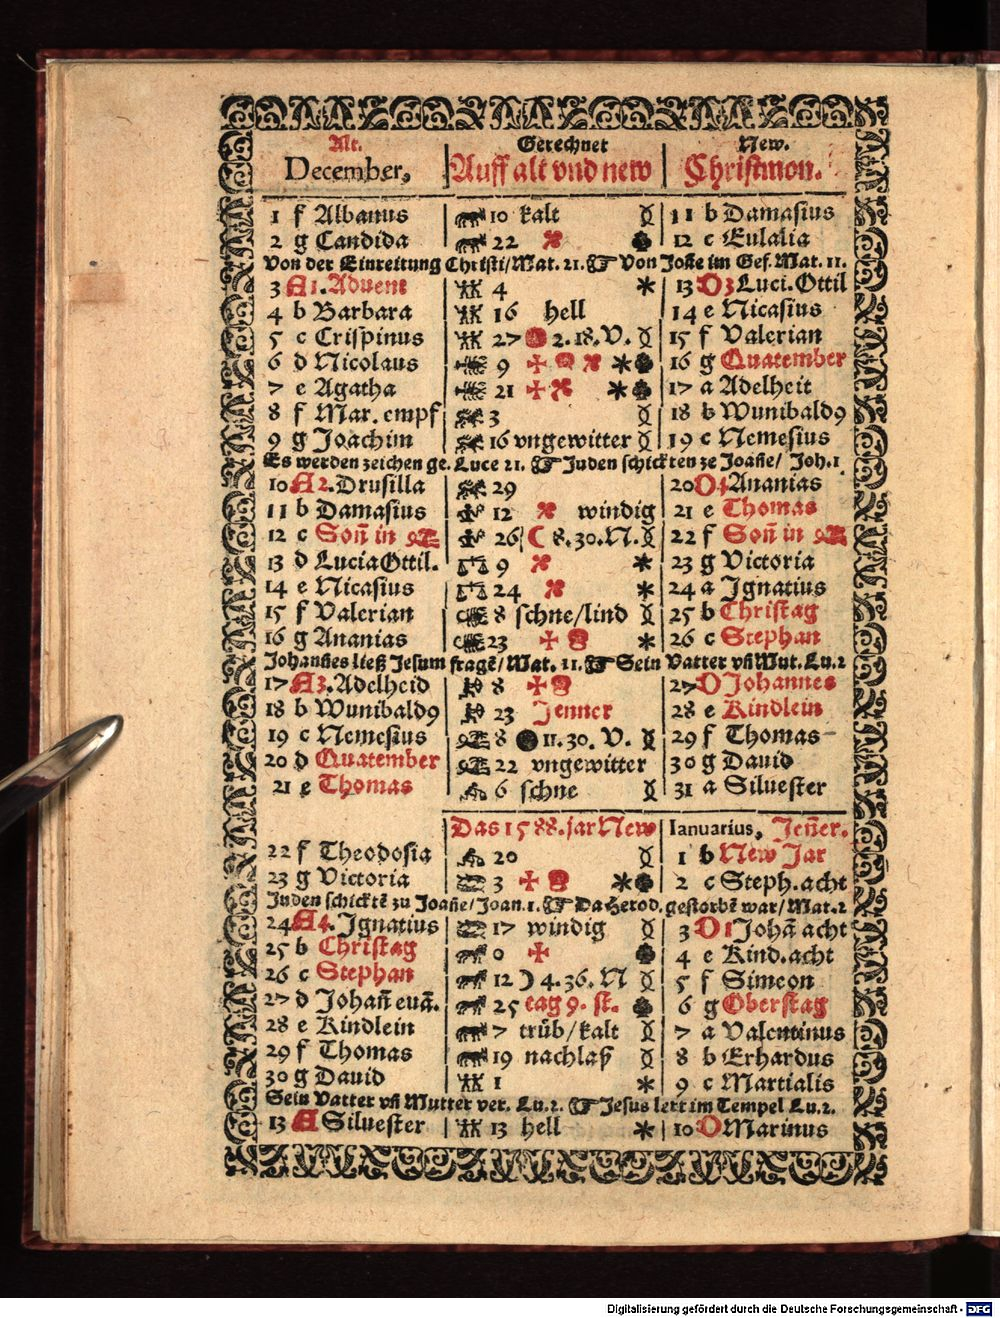 Alt. Gerechnet New.
December, Auff alt vnd new Christmon.
1 f Albanus 10 kalt 11 b Damasius
2 g Candida 22 12 c Eulalia
Von der Einreitung Christi/Mat. 21. Von Joñe im Gef. Mat. 11.
3 A1. Aduent 4 13 D3 Luci. Ottil
4 b Barbara 16 hell 14 e Nicasius
5 c Crispinus 27 2.18.V. 15 f Valerian
6 d Nicolaus 9 16 g Quatember
7 e Agatha 21 17 a Adelheit
8 f Mar. empf 3 18 b Wunibald9
9 g Joachim 16 vngewitter 19 c Nemesius
Es werden zeichen ge. Luce 21. Juden schickten ze Joañe/ Joh. 1
10 A2. Drusilla 29 20 D4 Ananias
11 b Damasius 12 windig 21 e Thomas
12 c Soñ in 26 8.30.N. 22 f Soñ in
13 d Lucia Ottil. 9 23 g Victoria
14 e Nicasius 24 24 a Ignatius
15 f Valerian 8 schne/lind 25 b Christag
16 g Ananias 23 26 c Stephan
Johañes ließ Jesum fragē/Mat. 11. Sein Vatter vñ Mut. Lu. 2
17 A3. Adelheid 8 27 D Johannes
18 b Wunibald9 23 Jenner 28 e Kindlein
19 c Nemesius 8 11.30. V. 29 f Thomas
20 d Quatember 22 vngewitter 30 g Dauid
21 e Thomas 6 schne 31 a Siluester
Das 1588. jar New Ianuarius, Jeñer.
22 f Theodosia 20 1 b New Jar
23 g Victoria 3 2 c Steph. acht
Juden schicktē zu Joañe/Joan. 1. Da Herod. gestorbē war/Mat. 2
24 A4. Ignatius 17 windig 3 D1 Johā acht
25 b Christag 0 4 e Kind. acht
26 c Stephan 12 4.36. N 5 f Simeon
27 d Johañ euā. 25 tag 9. st. 6 g Oberstag
28 e Kindlein 7 trüb/kalt 7 a Valentinus
29 f Thomas 19 nachlaß 8 b Erhardus
30 g Dauid 1 9 c Martialis
Sein Vatter vñ Mutter ver. Lu. 2. Jesus lert im Tempel Lu. 2.
13 A Siluester 13 hell 10 D Marinus
Digitalisierung gefördert durch die Deutsche Forschungsgemeinschaft - DFG